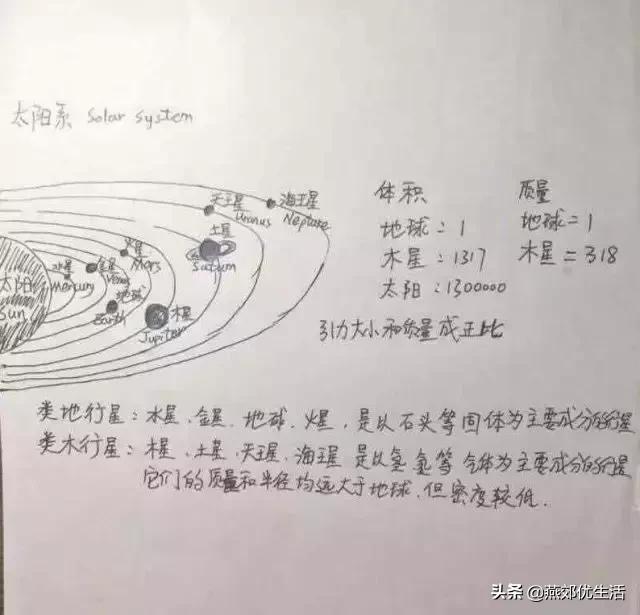 太阳系 Solar System
天王星 Uranus
海王星 Neptune
土星 Saturn
火星 Mars
水星 Mercury
金星
地球 Earth
木星 Jupiter
太阳 Sun
体积 质量
地球=1 地球=1
木星:1317 木星=318
太阳:1300000
引力大小和质量成正比
类地行星:水星、金星、地球、火星,是以石头等固体为主要成分的行星
类木行星:木星、土星、天王星、海王星 是以氢氦等气体为主要成分的行星
它们的质量和半径均远大于地球,但密度较低.
头条 @燕郊优生活